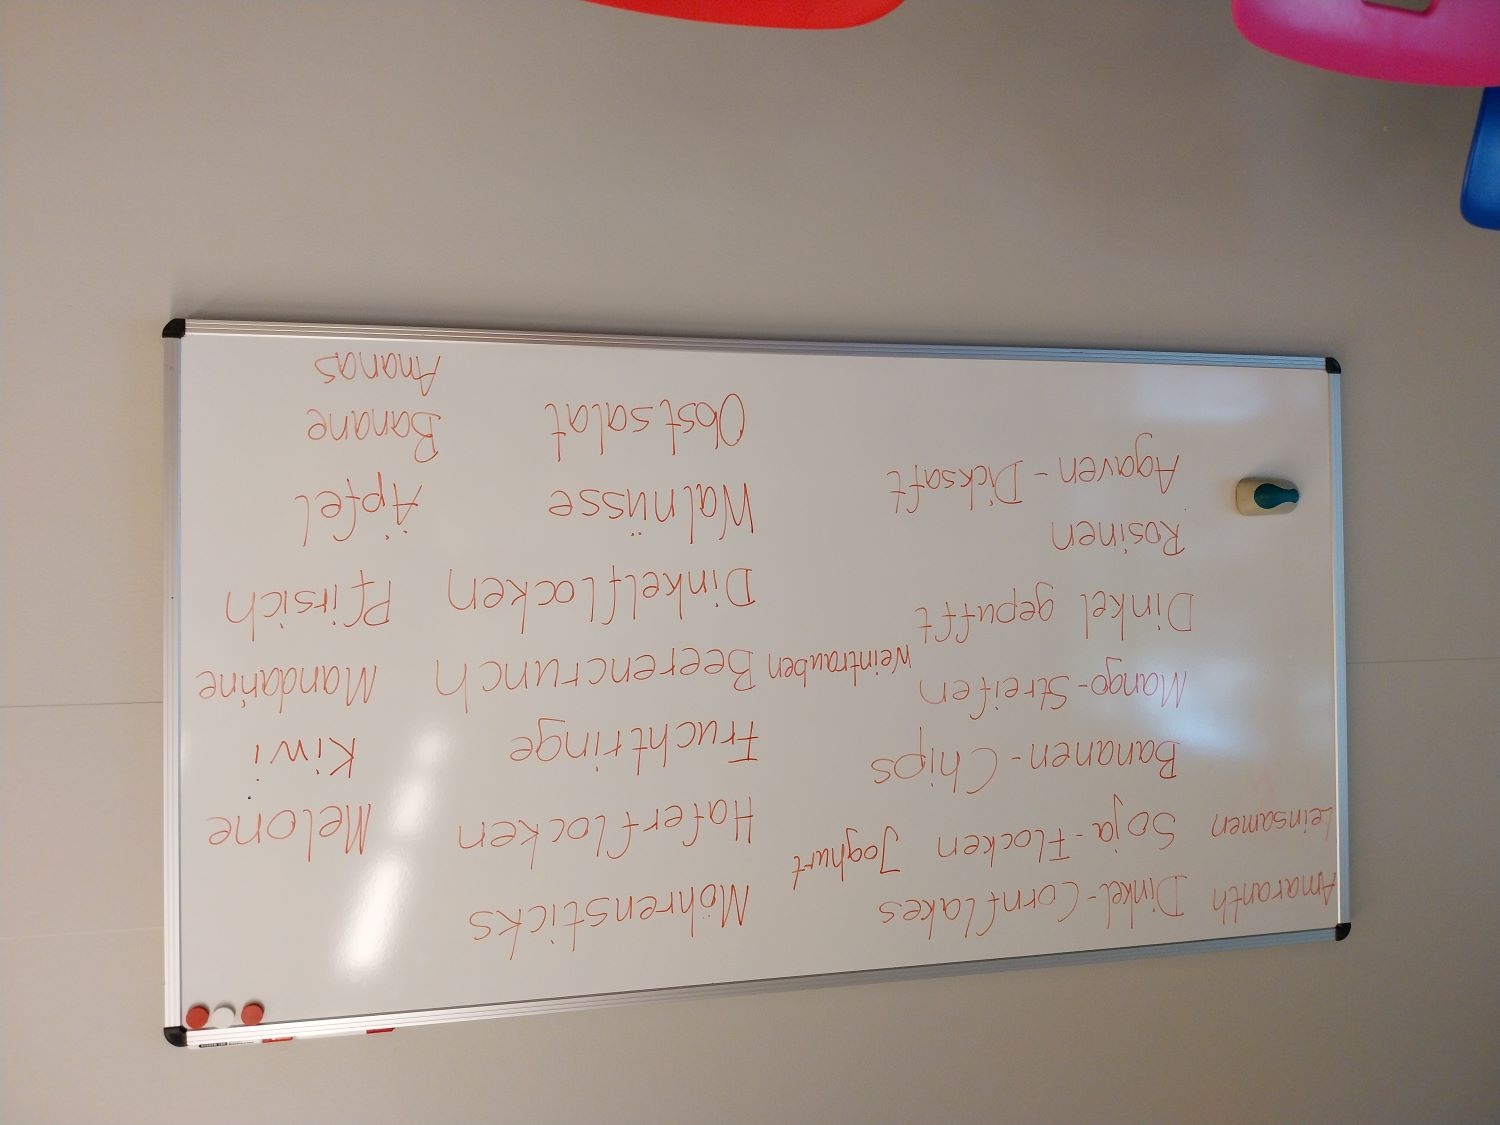 Amaranth
Leinsamen
Dinkel-Cornflakes
Soja-Flocken
Bananen-Chips
Mango-Streifen
Dinkel gepufft
Rosinen
Agaven-Dicksaft
Joghurt
Weintrauben
Möhrensticks
Haferflocken
Fruchtringe
Beerencrunch
Dinkelflocken
Walnüsse
Obstsalat
Melone
Kiwi
Mandarine
Pfirsich
Äpfel
Banane
Ananas